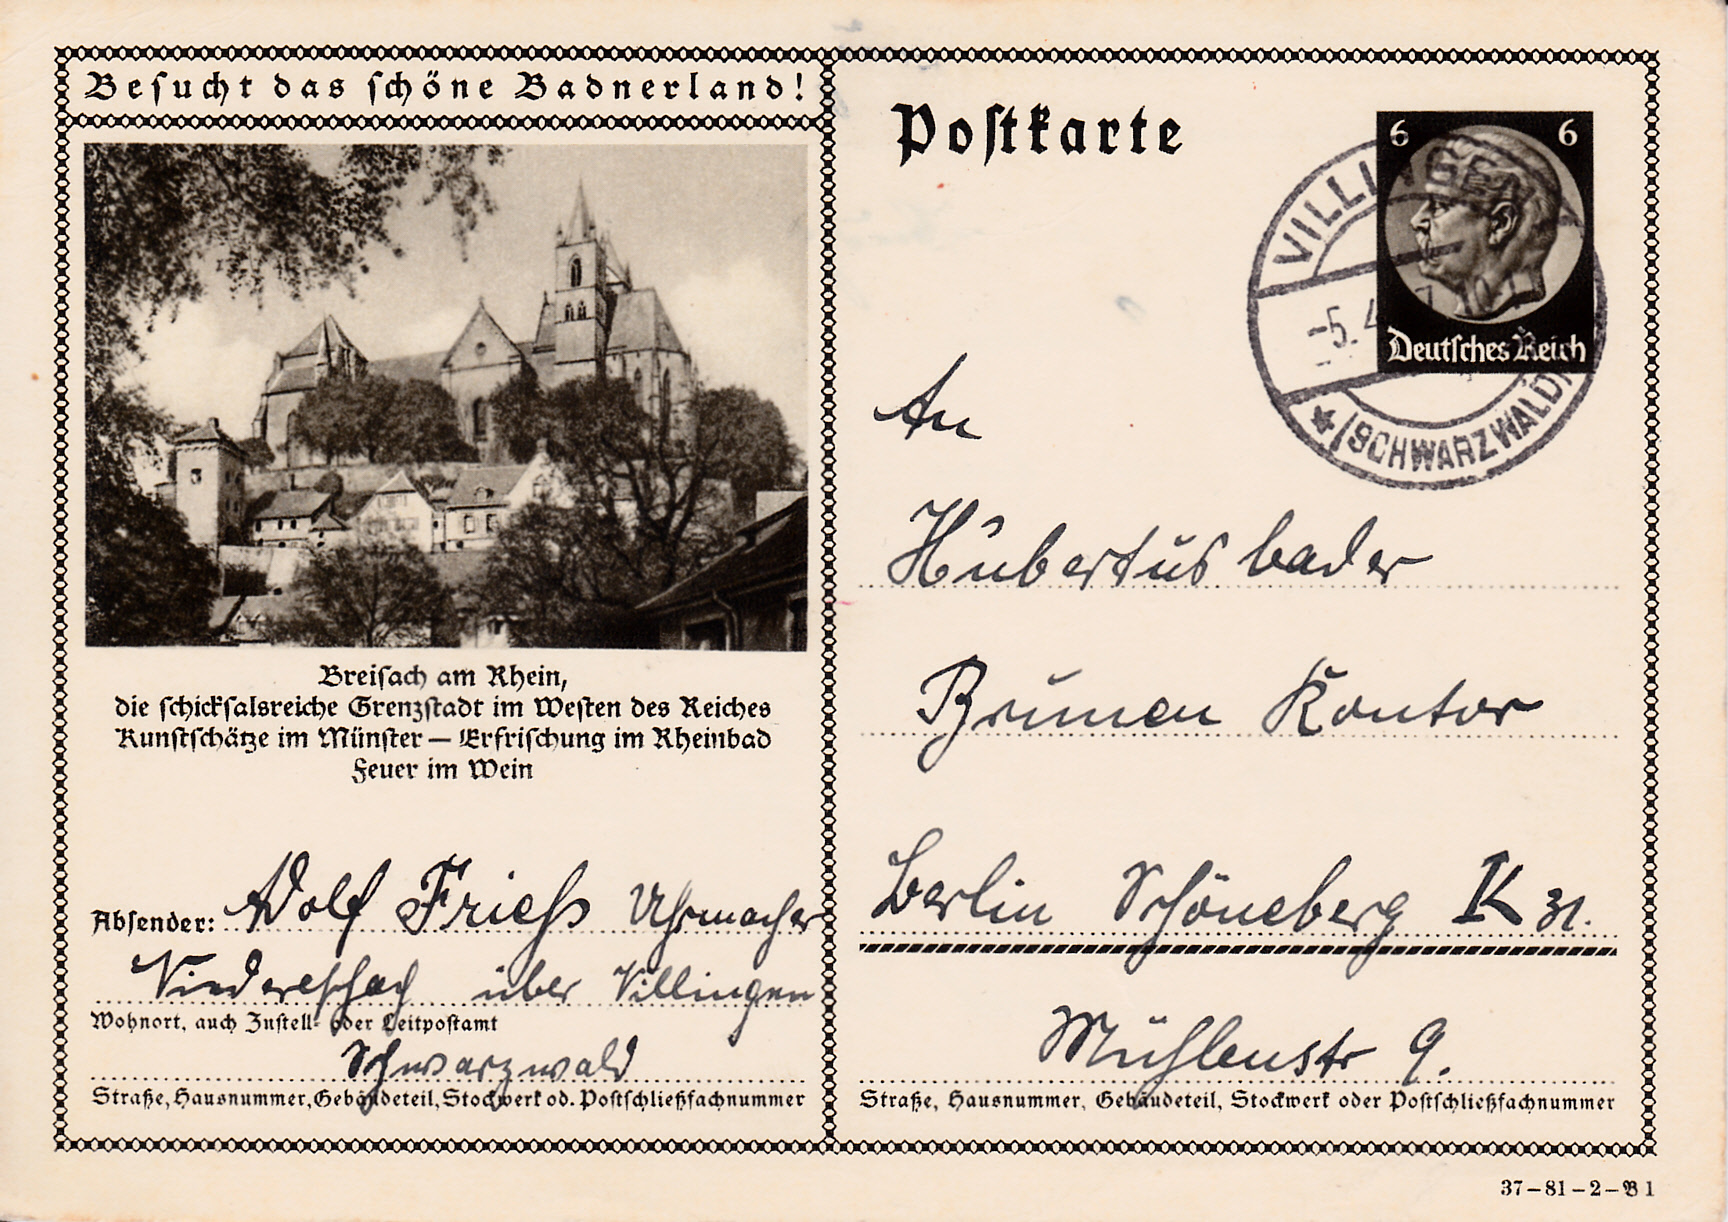 Besucht das schöne Badnerland!
Breisach am Rhein,
die schicksalsreiche Grenzstadt im Westen des Reiches
Kunstschätze im Münster — Erfrischung im Rheinbad
Feuer im Wein
Absender: Adolf Friess Uhrmacher
Niedereschach über Villingen
Wohnort, auch Zustell- oder Leitpostamt
Schwarzwald
Straße, Hausnummer, Gebäudeteil, Stockwerk od. Postschließfachnummer
Postkarte
6 6
Deutsches Reich
VILLINGEN
-5.4
* (SCHWARZWALD)
An
Hubertusbader
Brunnen Kontor
Berlin Schöneberg K 31.
Mühlenstr 9.
Straße, Hausnummer, Gebäudeteil, Stockwerk oder Postschließfachnummer
37-81-2-B 1